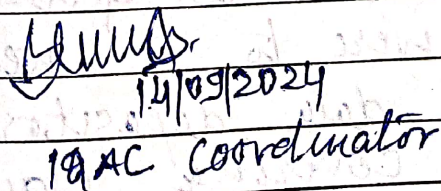 14/09/2024
IQAC Coordinator